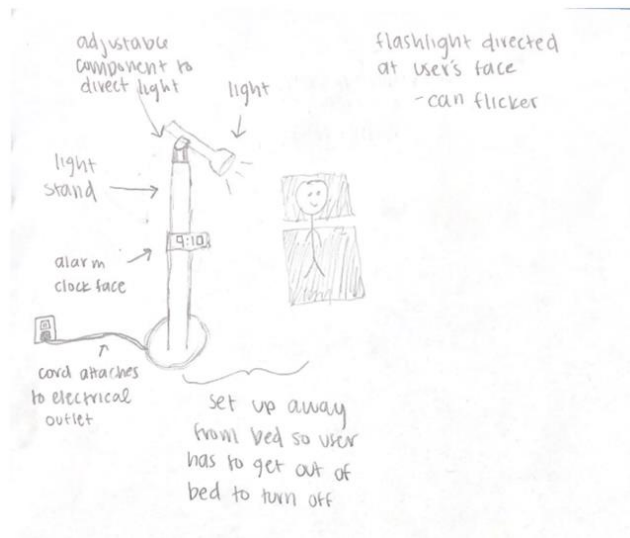 adjustable
component to
direct light
light
flashlight directed
at user's face
-can flicker
light
stand
9:10
alarm
clock face
cord attaches
to electrical
outlet
set up away
from bed so user
has to get out of
bed to turn off